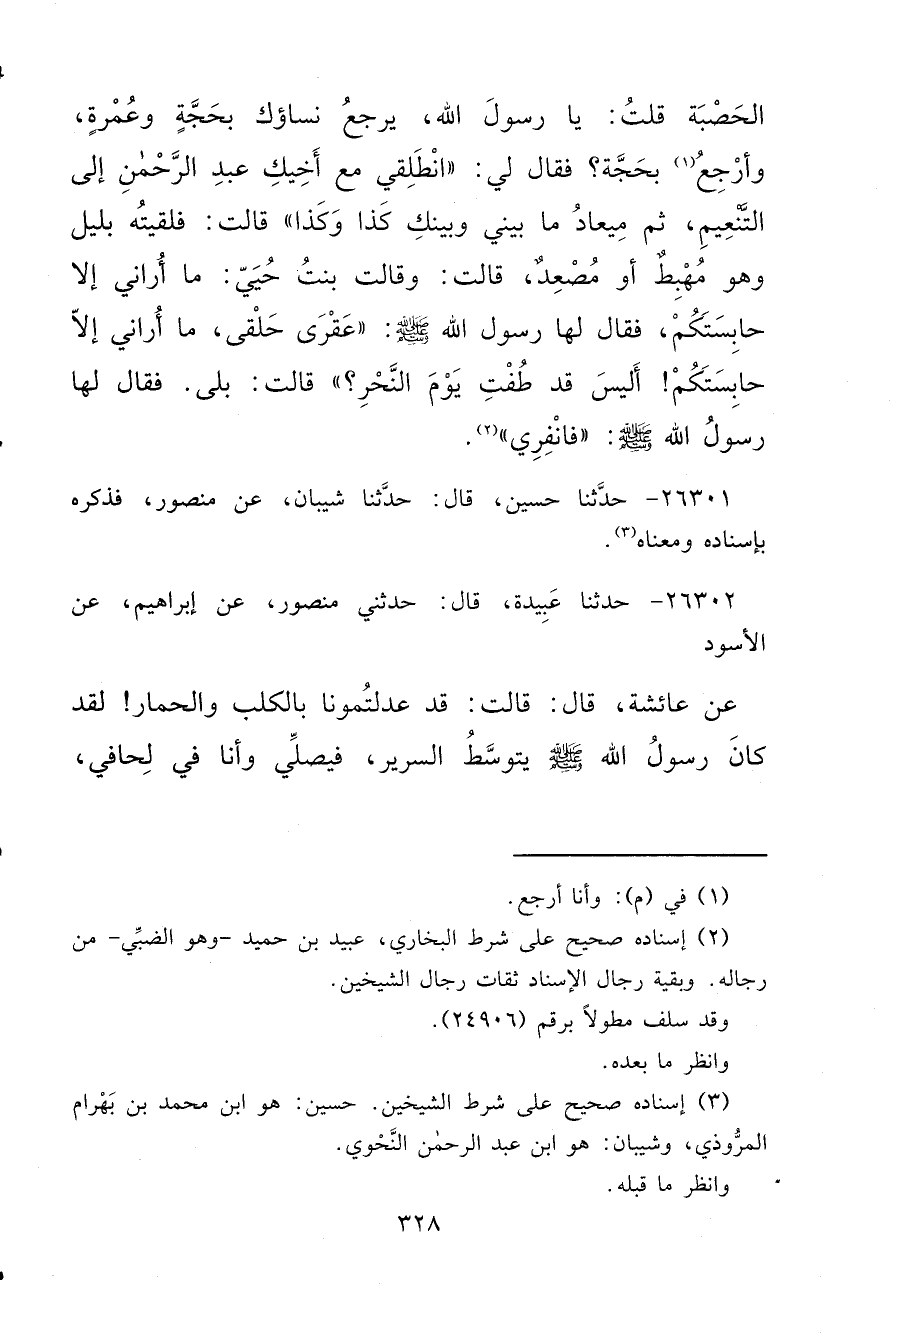 الحَصْبَة قلتُ: يا رسولَ الله، يرجعُ نساؤك بحَجَّةٍ وعُمْرةٍ،
وأرْجِعُ(١) بحَجَّة؟ فقال لي: «انْطَلِقي مع أَخِيكِ عبدِ الرَّحْمٰنِ إلى
التَّنْعِيمِ، ثم مِيعادُ ما بيني وبينكِ كَذا وَكَذا» قالت: فلقيتُه بليل
وهو مُهْبِطٌ أو مُصْعِدٌ، قالت: وقالت بنتُ حُيَيّ: ما أُراني إلا
حابِسَتَكُمْ، فقال لها رسول الله ﷺ: «عَقْرَى حَلْقى، ما أُراني إلاّ
حابِسَتَكُمْ! أَليسَ قد طُفْتِ يَوْمَ النَّحْرِ؟» قالت: بلى. فقال لها
رسولُ الله ﷺ: «فانْفِري»(٢).
٢٦٣٠١- حدَّثنا حسين، قال: حدَّثنا شيبان، عن منصور، فذكره
بإسناده ومعناه(٣).
٢٦٣٠٢- حدثنا عَبِيدة، قال: حدثني منصور، عن إبراهيم، عن
الأسود
عن عائشة، قال: قالت: قد عدلتُمونا بالكلب والحمار! لقد
كانَ رسولُ الله ﷺ يتوسَّطُ السرير، فيصلِّي وأنا في لِحافي،
(١) في (م): وأنا أرجع.
(٢) إسناده صحيح على شرط البخاري، عبيد بن حميد -وهو الضبِّي- من
رجاله. وبقية رجال الإسناد ثقات رجال الشيخين.
وقد سلف مطولاً برقم (٢٤٩٠٦).
وانظر ما بعده.
(٣) إسناده صحيح على شرط الشيخين. حسين: هو ابن محمد بن بَهْرام
المرُّوذي، وشيبان: هو ابن عبد الرحمٰن النَّحْوي.
وانظر ما قبله.
٣٢٨